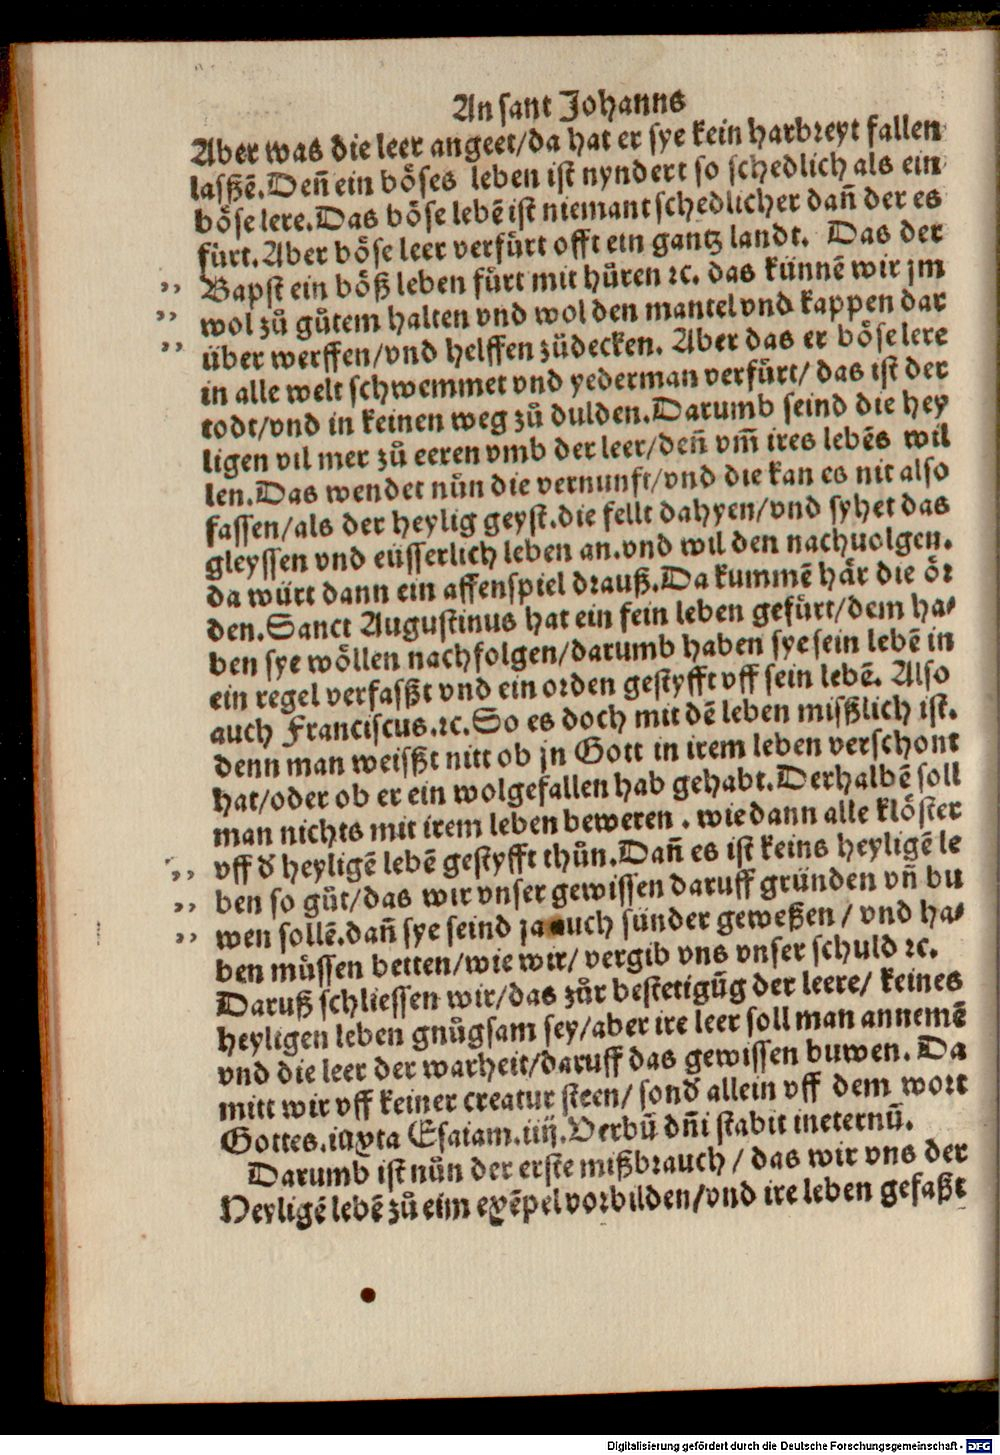 An sant Johanns
Aber was die leer angeet/da hat er sye kein harbreyt fallen
lasßẽ. Deñ ein böses leben ist nyndert so schedlich als ein
böse lere. Das böse lebẽ ist niemant schedlicher dañ der es
fürt. Aber böse leer verfürt offt ein gantz landt. Das der
,, Bapst ein böß leben fůrt mit hůren ꝛc. das künnẽ wir jm
,, wol zů gůtem halten vnd wol den mantel vnd kappen dar
,, über werffen/vnd helffen zůdecken. Aber das er böse lere
in alle welt schwemmet vnd yederman verfürt/ das ist der
todt/vnd in keinen weg zů dulden. Darumb seind die hey
ligen vil mer zů eeren vmb der leer/deñ vm̃ ires lebẽs wil
len. Das wendet nůn die vernunft/vnd die kan es nit also
fassen/als der heylig geyst. die fellt dahyen/vnd syhet das
gleyssen vnd eüsserlich leben an. vnd wil den nachuolgen.
da würt dann ein affenspiel drauß. Da kummẽ här die ör
den. Sanct Augustinus hat ein fein leben gefürt/dem ha⸗
ben sye wöllen nachfolgen/darumb haben sye sein lebẽ in
ein regel verfasßt vnd ein orden gestyfft vff sein lebẽ. Also
auch Franciscus. ꝛc. So es doch mit dẽ leben mißlich ist.
denn man weisßt nitt ob jn Gott in irem leben verschont
hat/oder ob er ein wolgefallen hab gehabt. Derhalbẽ soll
man nichts mit irem leben beweren. wie dann alle klöster
,, vff d̕ heyligẽ lebẽ gestyfft thůn. Dañ es ist keins heyligẽ le
,, ben so gůt/das wir vnser gewissen daruff gründen vñ bu
,, wen sollẽ. dañ sye seind ja auch sünder geweßen / vnd ha⸗
ben müssen betten/wie wir/ vergib vns vnser schuld ꝛc.
Daruß schliessen wir/das zůr bestetigũg der leere/ keines
heyligen leben gnůgsam sey/aber ire leer soll man annemẽ
vnd die leer der warheit/daruff das gewissen buwen. Da
mitt wir vff keiner creatur steen/ sond̕ allein vff dem wort
Gottes. iuxta Esaiam. iiij. Verbũ dñi stabit ineternũ.
Darumb ist nůn der erste mißbrauch / das wir vns der
Heyligẽ lebẽ zů eim exẽpel vorbilden/vnd ire leben gefaßt
Digitalisierung gefördert durch die Deutsche Forschungsgemeinschaft - DFG